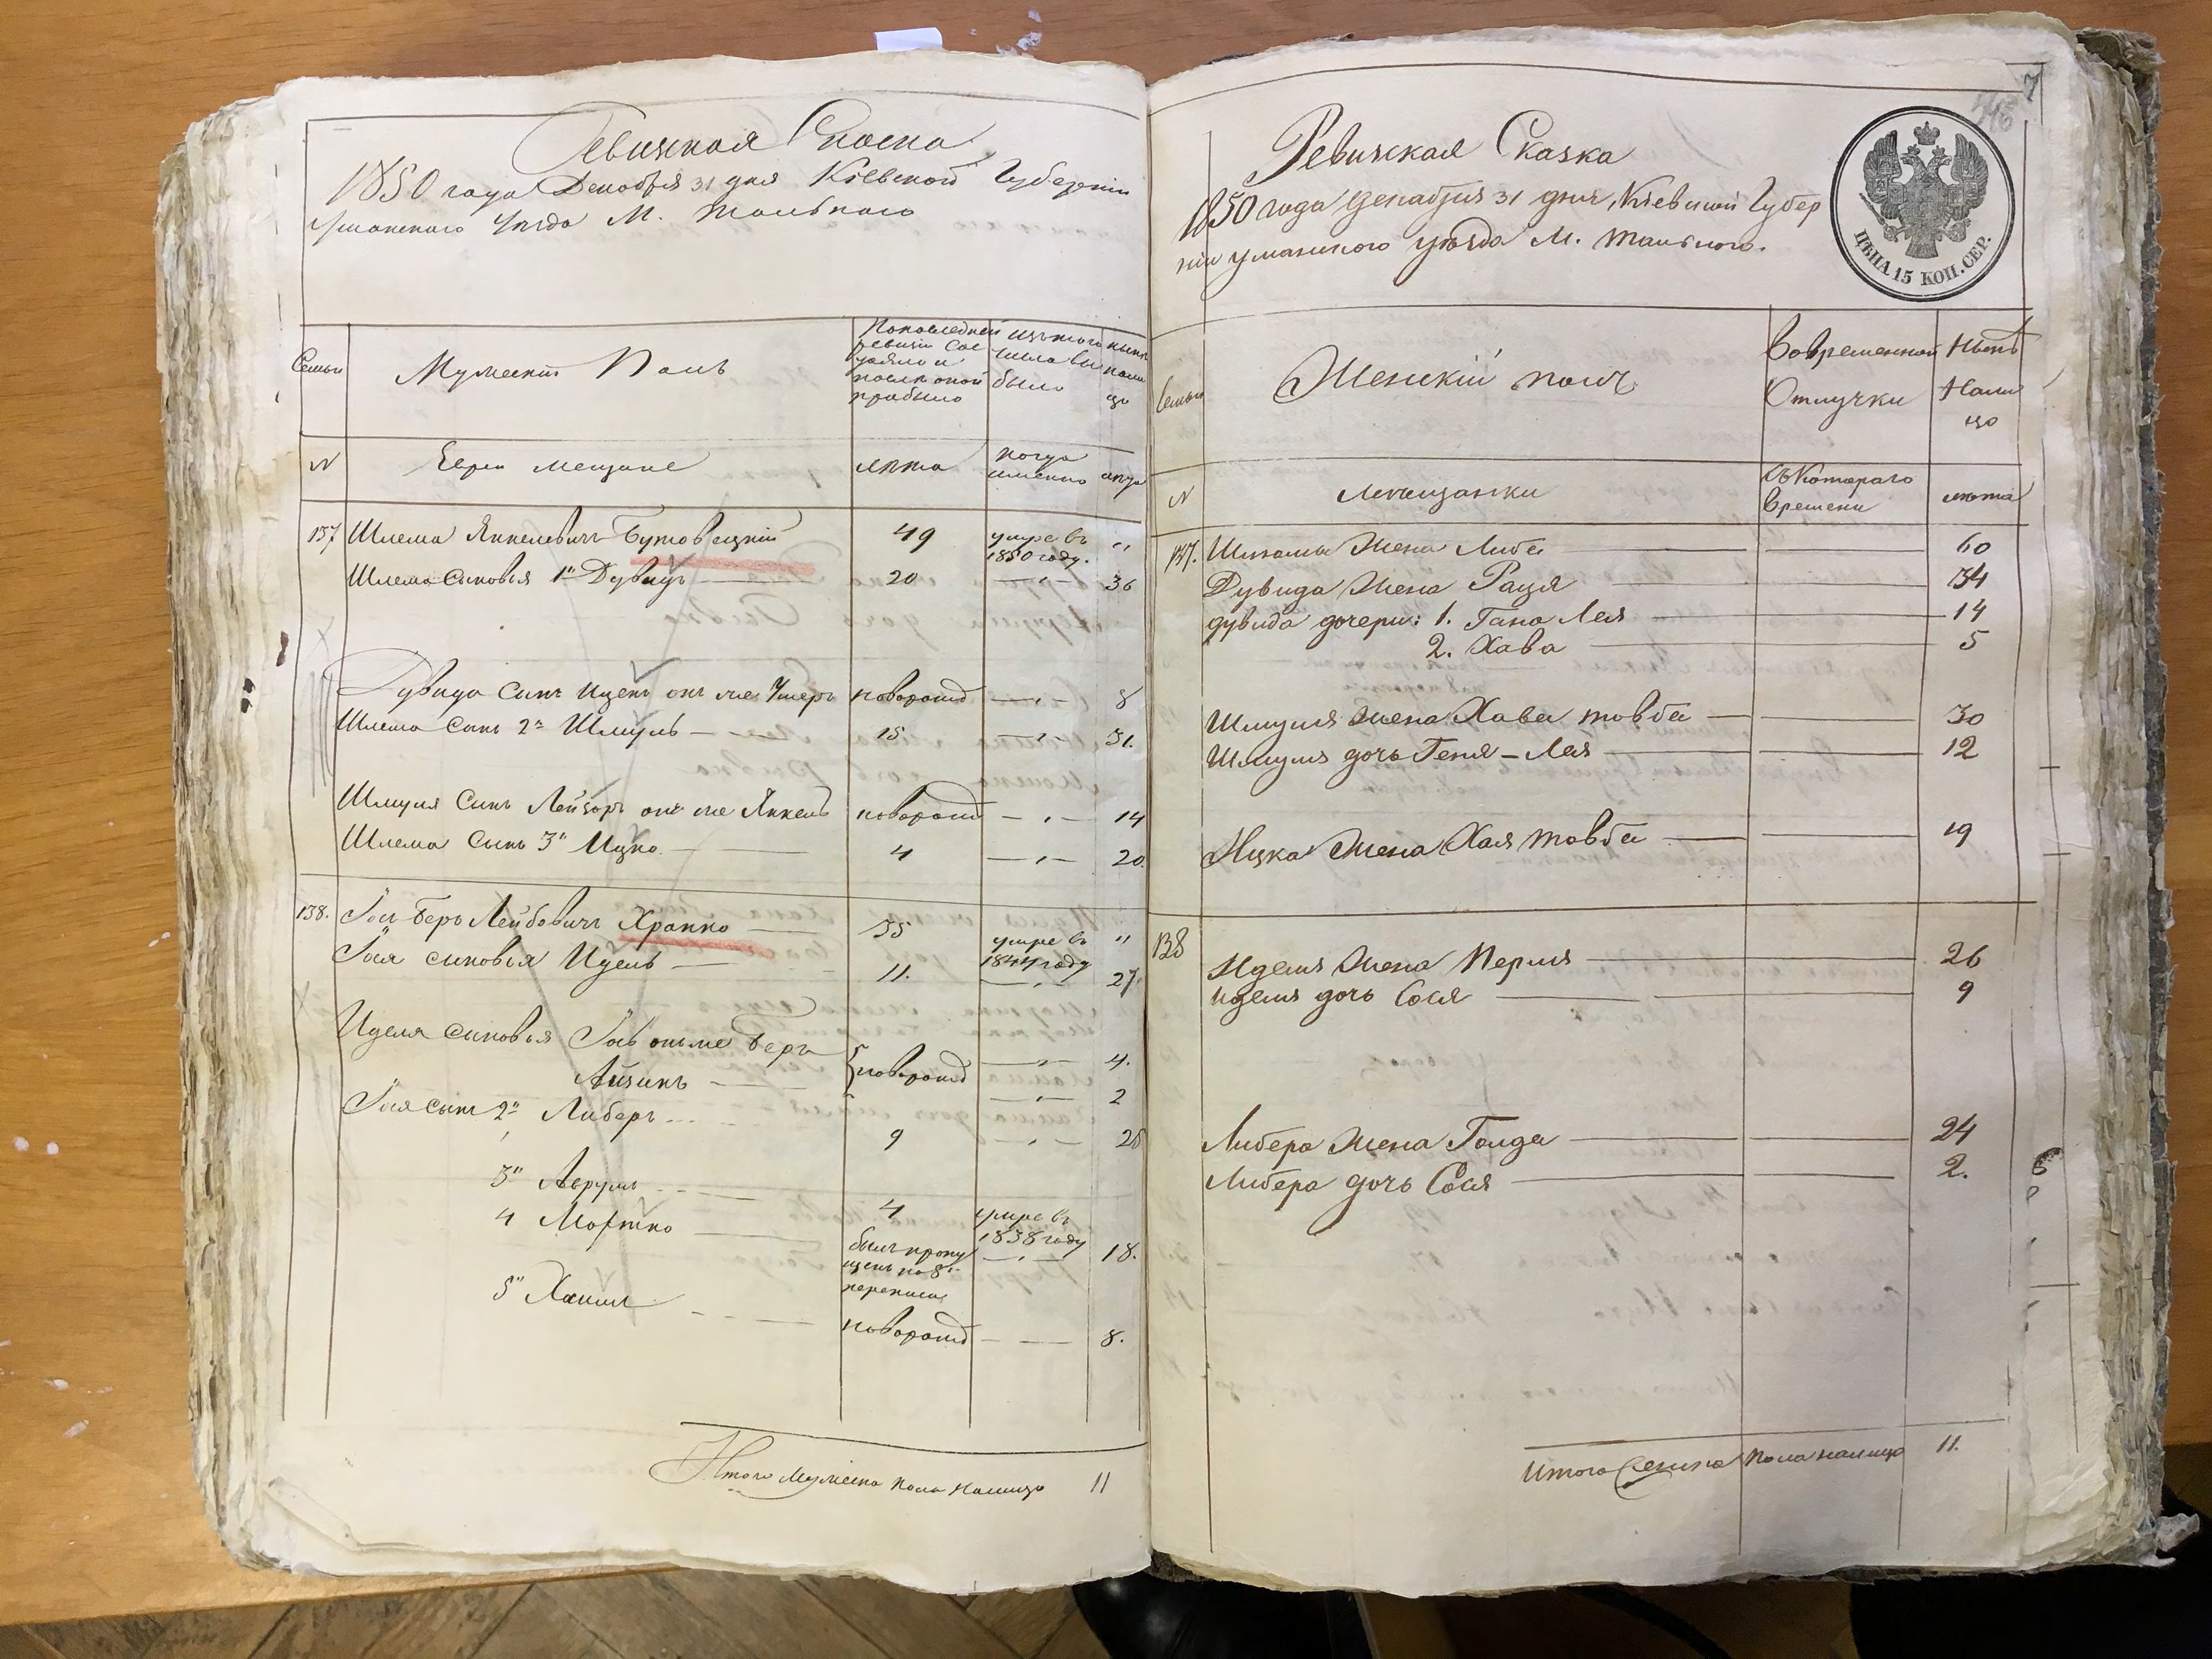 Ревижская Сказка
1850 года Декабря 31 дня Кіевской Губерніи
Уманского Уезда М. Тального
Семьи
Мужескій Полъ
По последней ревизіи состояло и после оной прибыло
Изъ того числа выбыло
Ныне на лицо
N
Евреи мещане
лета
когда именно
лета
137 Шлема Янкелевичъ Бутовецкій 49 умре въ 1850 году. "
Шлема сыновья 1й Дувидъ 20 — " — 36
Дувида сынъ Ицекъ онъ же Ушеръ новорожд — " — 8
Шлема сынъ 2й Шмуль 15 — " — 31.
Шмуля сынъ Лейзоръ онъ же Янкель новорожд — " — 14
Шлема сынъ 3й Ицко 4 — " — 20.
138. Беръ Лейбовичъ Храпко 55 умре въ 1844 году "
сыновья Идель 11. — " — 27.
Иделя сыновья онъ же Беръ новорожд — " — 4.
Айзикъ — " — 2
сынъ 2й Либеръ 9 — " — 25
3й Аврумъ 4 умре въ 1838 году
4 Мортко былъ пропущенъ по 8й переписи — " — 18.
5й Хаимъ новорожд — — 8.
Итого мужеска пола налицо 11
Ревижская Сказка
1850 года Декабря 31 дня, Кіевской Губер
ніи Уманского уезда М. Тального.
ЦѢНА 15 КОП. СЕР.
Семьи
Женскій полъ
Вовременной Отлучки
Ныне На лицо
N
Мещанки
Съ Котораго Времени
лета
137. Шлемы жена Либа 60
Дувида жена Раця 34
Дувида дочери: 1. Гана Лея 14
2. Хава 5
Шмуля жена Хава товба 30
Шмуля дочь Геня – Лея 12
Ицка жена Хая товба 19
138 Иделя жена Перля 26
Иделя дочь Сося 9
Либера жена Голда 24
Либера дочь Сося 2.
Итого женска пола налицо 11.